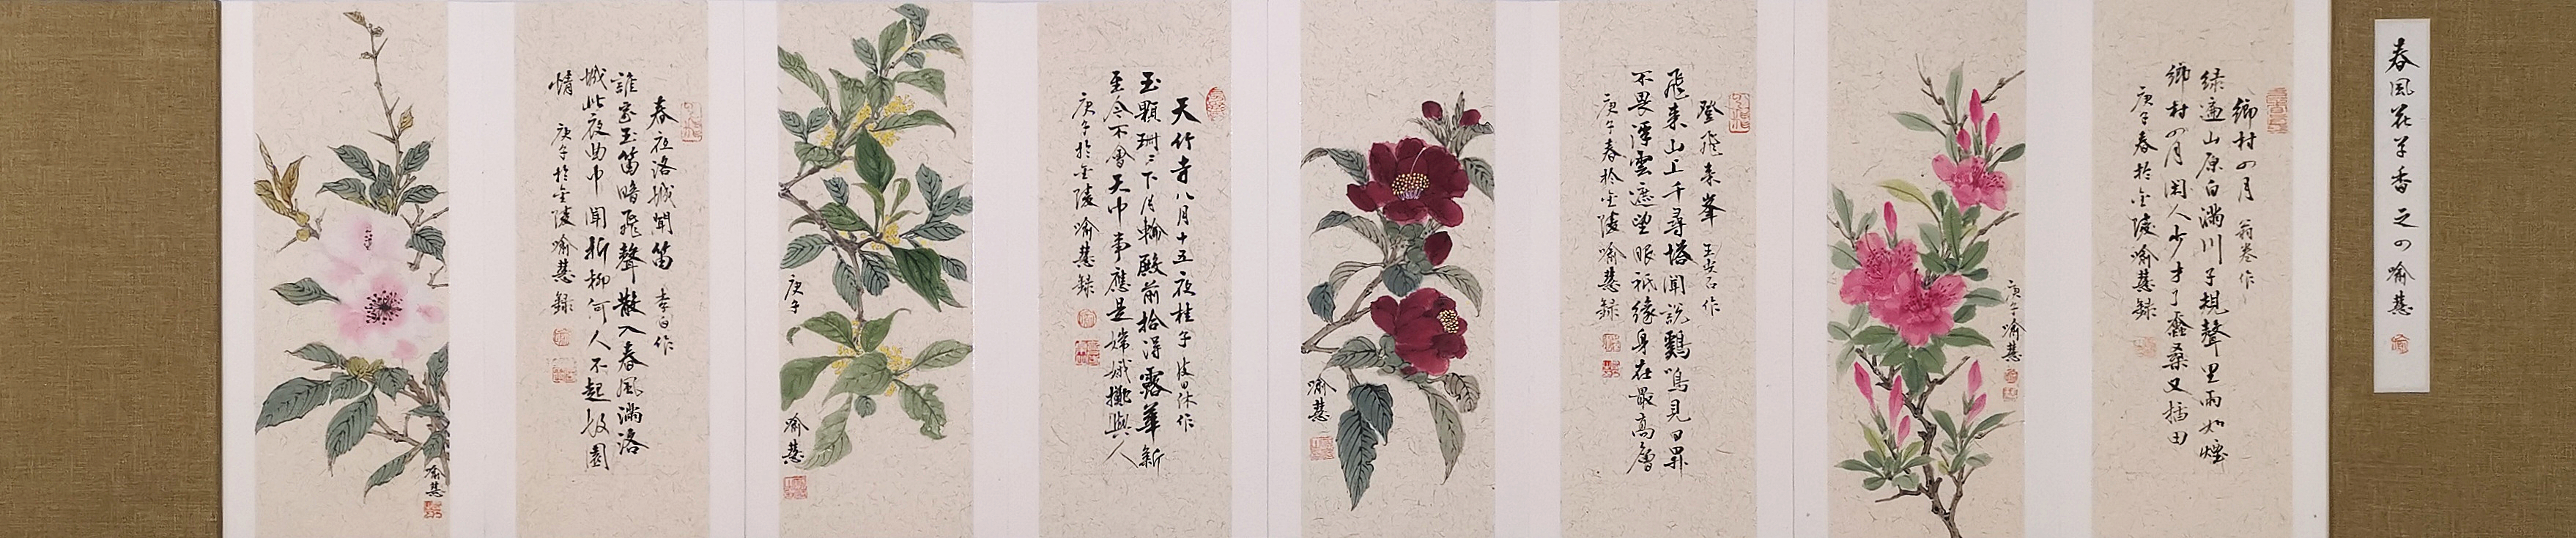 春風花草香之四喻慧
鄉村四月 翁卷作
绿遍山原白滿川子規聲里雨如煙
鄉村四月閑人少才了蠶桑又插田
庚子春於金陵喻慧録
庚子喻慧
登飛来峯 王安石作
飛来山上千尋塔聞説鷄鳴見日昇
不畏浮雲遮望眼祇緣身在最高層
庚子春於金陵喻慧録
喻慧
天竹寺八月十五夜桂子 皮日休作
玉顆珊三下月輪殿前拾得露華新
至今不會天中事應是嫦娥擲與人
庚子於金陵喻慧録
庚子
喻慧
春夜洛城聞笛 李白作
誰家玉笛暗飛聲散入春風滿洛
城此夜曲中聞折柳何人不起故園
情 庚子於金陵喻慧録
喻慧